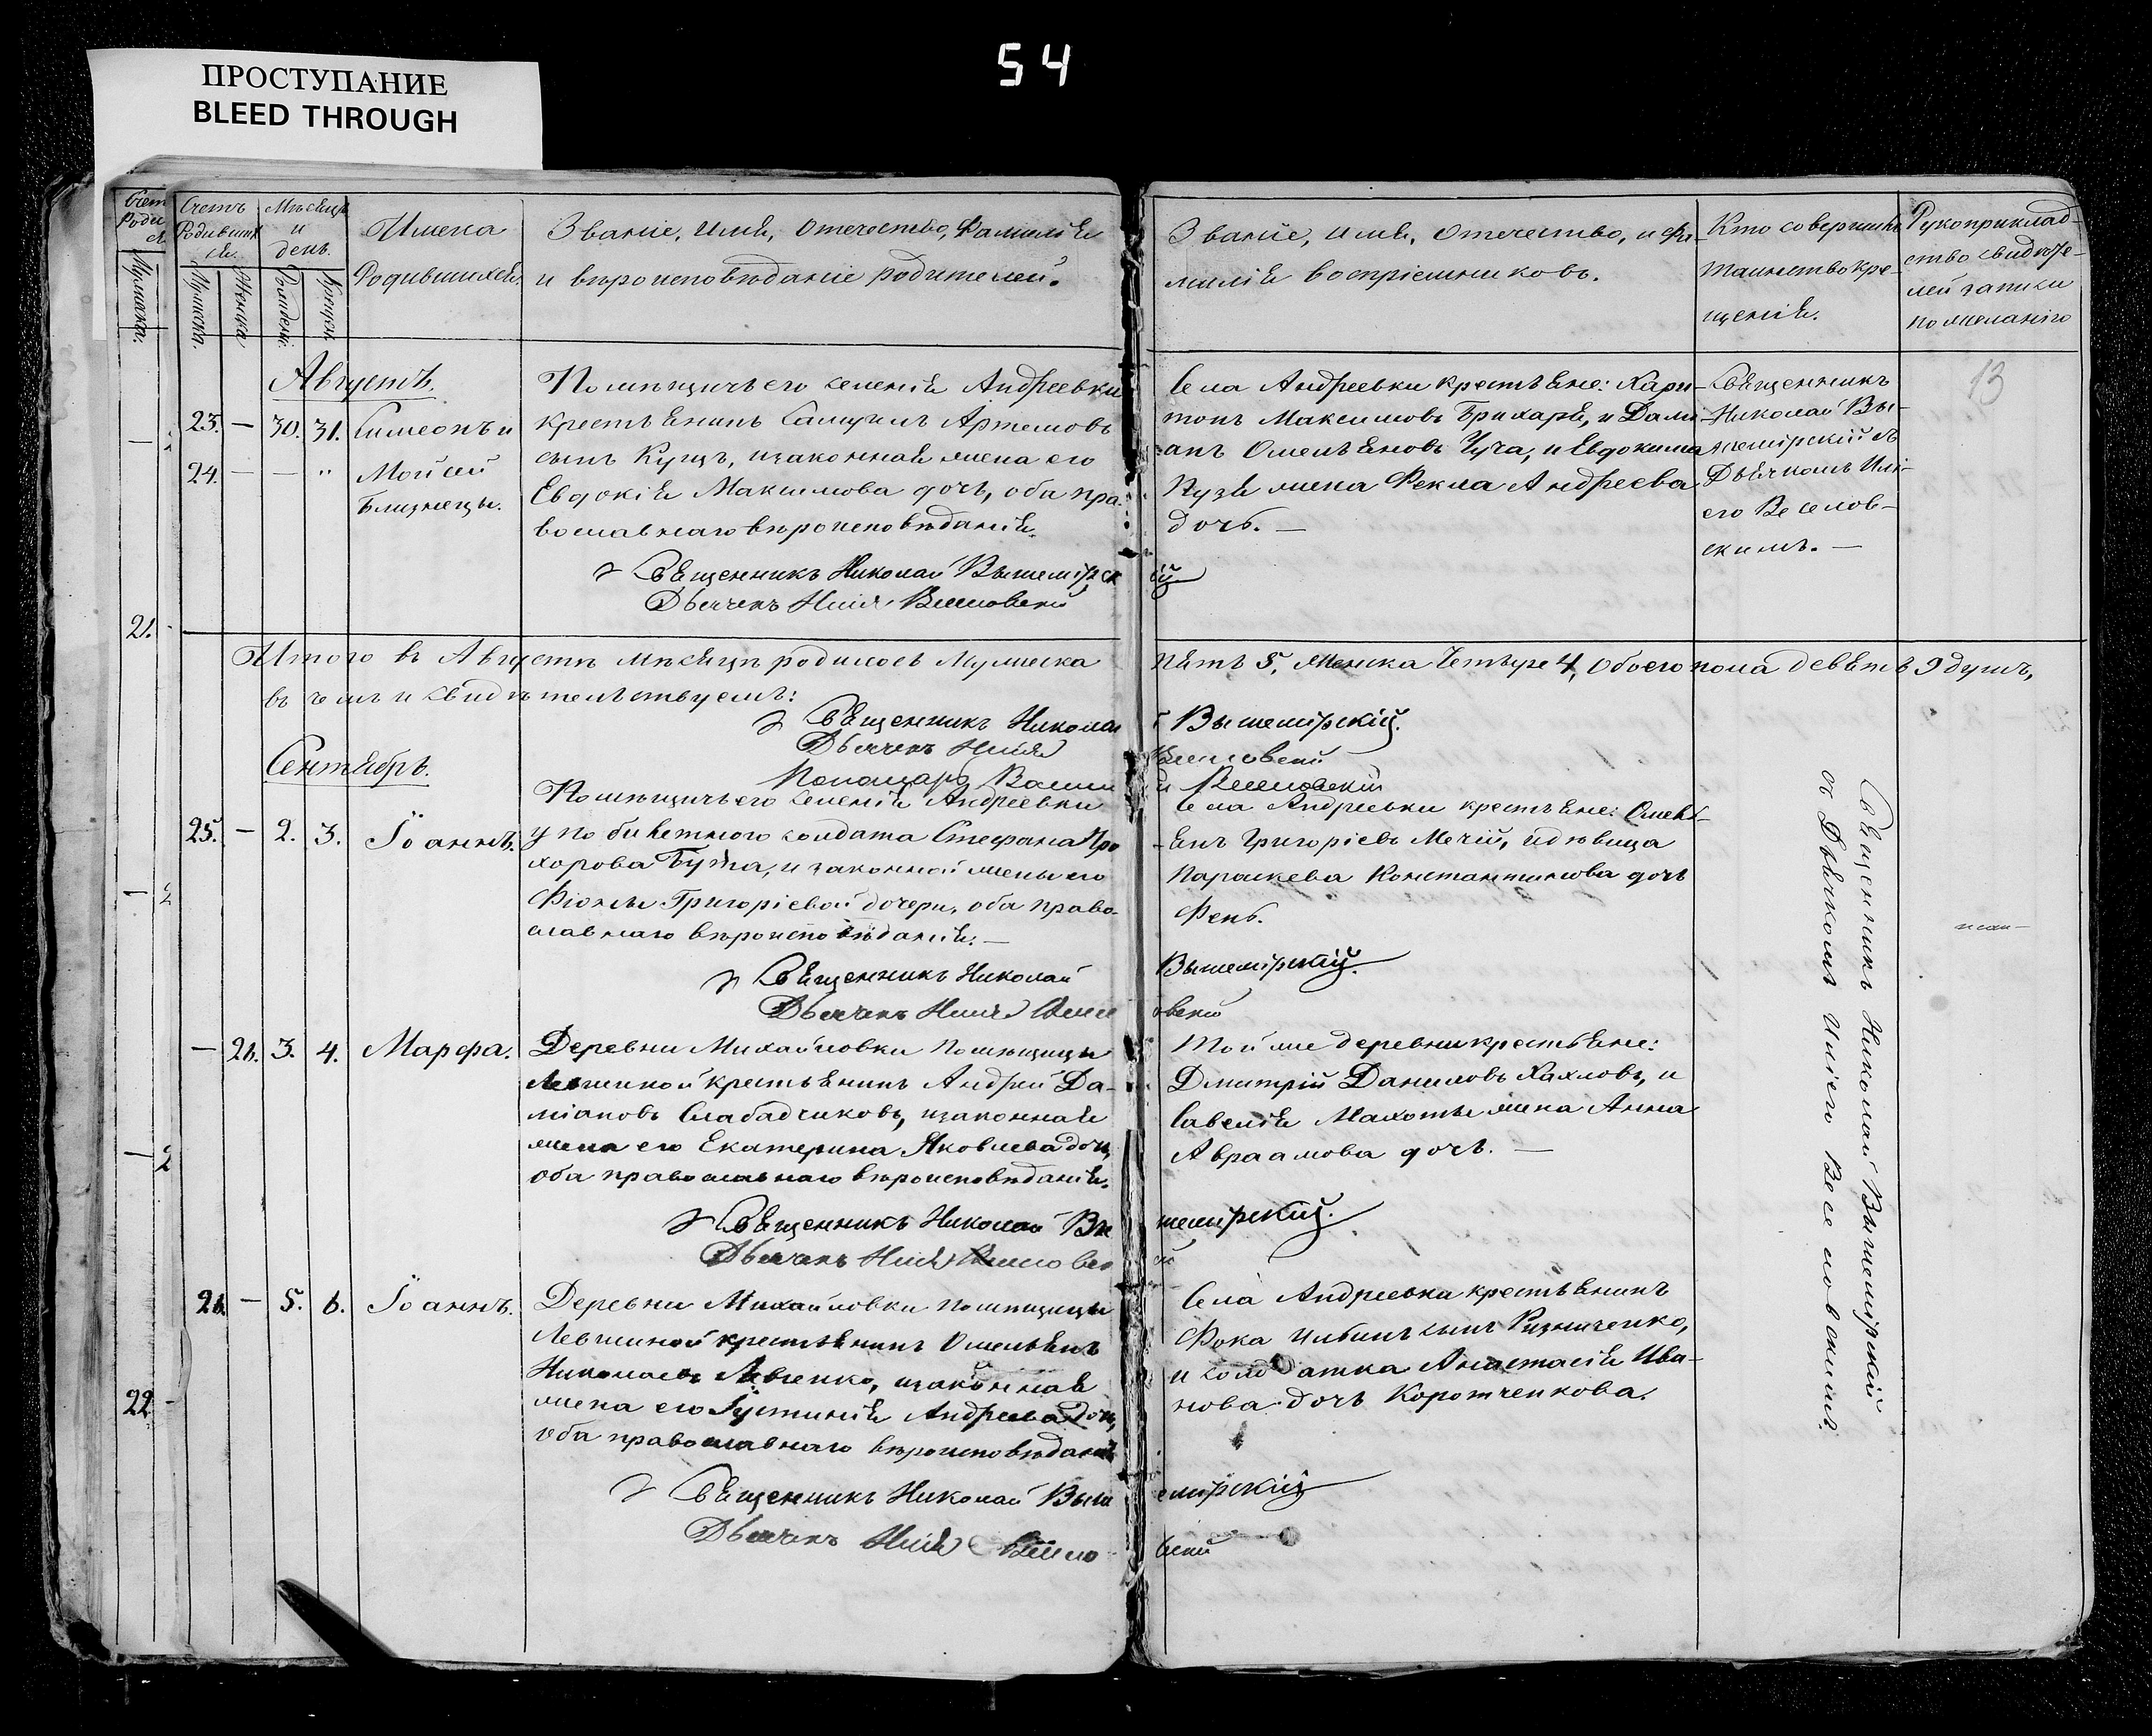 54
ПРОСТУПАНИЕ
BLEED THROUGH
Счетъ Родившихся.
Мужеска.
Женска
Мѣсяцъ и день.
Рожденiя.
Крещен.
Имена
Родившихся.
Званіе, имя, отечество, фамилія
и вѣроисповѣданіе родителей.
Званіе, имя, отечество, и фа-
милія воспріемниковъ.
Кто совершилъ
таинство кре-
щенія.
Рукоприклад-
ство свидѣте-
лей записи
по желанію
13
Августъ.
23. — 30. 31. Симеонъ и
24. — — " Мойсей
Близнецы.
Помѣщичьего селенія Андреевки
крестьянинъ Самуилъ Артемовъ
сынъ Куцъ, и законная жена его
Евдокія Максимова дочь, оба пра-
вославнаго вѣроисповѣданія.
Села Андреевки крестьяне: Хари-
тонъ Максимовъ Брихаря, и Дами-
анъ Омельяновъ Чуча, и Евдокима
Пузя жена Фекла Андреева
дочь. —
Священникъ
Николай Вы-
шемірскій съ
Дьячкомъ Илі-
ею Веселов-
скимъ. —
Священникъ Николай Вышемірскій
Дьячекъ Илія Веселовскій
21.
Итого въ Августѣ мѣсяцѣ родилось Мужеска пять 5, Женска Четыре 4, Обоего пола девять 9 душъ,
въ чемъ и свидѣтельствуемъ:
Священникъ Николай Вышемірскій.
Дьячекъ Илія Веселовскій
Пономарь Веселовскій
Сентябрь.
25. — 2. 3. Іоаннъ.
Помѣщичьего селенія Андреевки
у по билетного солдата Стефана Про
хорова Бута, и законной жены его
Фіоклы Григоріевой дочери, оба право-
славнаго вѣроисповѣданія. —
Села Андреевки крестьяне: Омель-
янъ Григоріевъ Мечій, и дѣвица
Параскева Константинова дочь
Фень.
Священникъ Николай Вышемірскій.
Дьячекъ Илія Веселовскій
— 2 3. 4. Марфа.
Деревни Михайловки помѣщицы
Левшиной крестьянинъ Андрей Да-
міановъ Слабадчиковъ, и законная
жена его Екатерина Яковлева дочь,
оба православнаго вѣроисповѣданія.
Той же деревни крестьяне:
Дмитрій Даниловъ Хахловъ, и
Савелія Махоты жена Анна
Авраамова дочь. —
Священникъ Николай Вышемірскій.
Дьячекъ Илія Веселовскій
26. — 5. 6. Іоаннъ.
Деревни Михайловки помѣщицы
Левшиной крестьянинъ Омельянъ
Николаевъ Левченко, и законная
жена его Іустинія Андреева дочь,
оба православнаго вѣроисповѣданія
Села Андреевка крестьянинъ
Фока Ильинъ сынъ Ризниченко,
и солдатка Анастасія Ива-
нова дочь Коротченкова.
Священникъ Николай Вышемірскій
Дьячекъ Илія Веселовскій
22
Священникъ Николай Вышемірскій
съ Дьячкомъ Иліею Веселовскимъ.